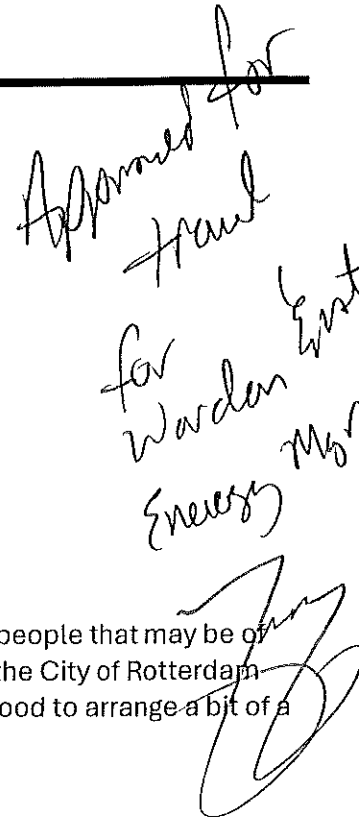 Approved for
travel
for
Warden
Energy Mgr
people that may be of
the City of Rotterdam
ood to arrange a bit of a